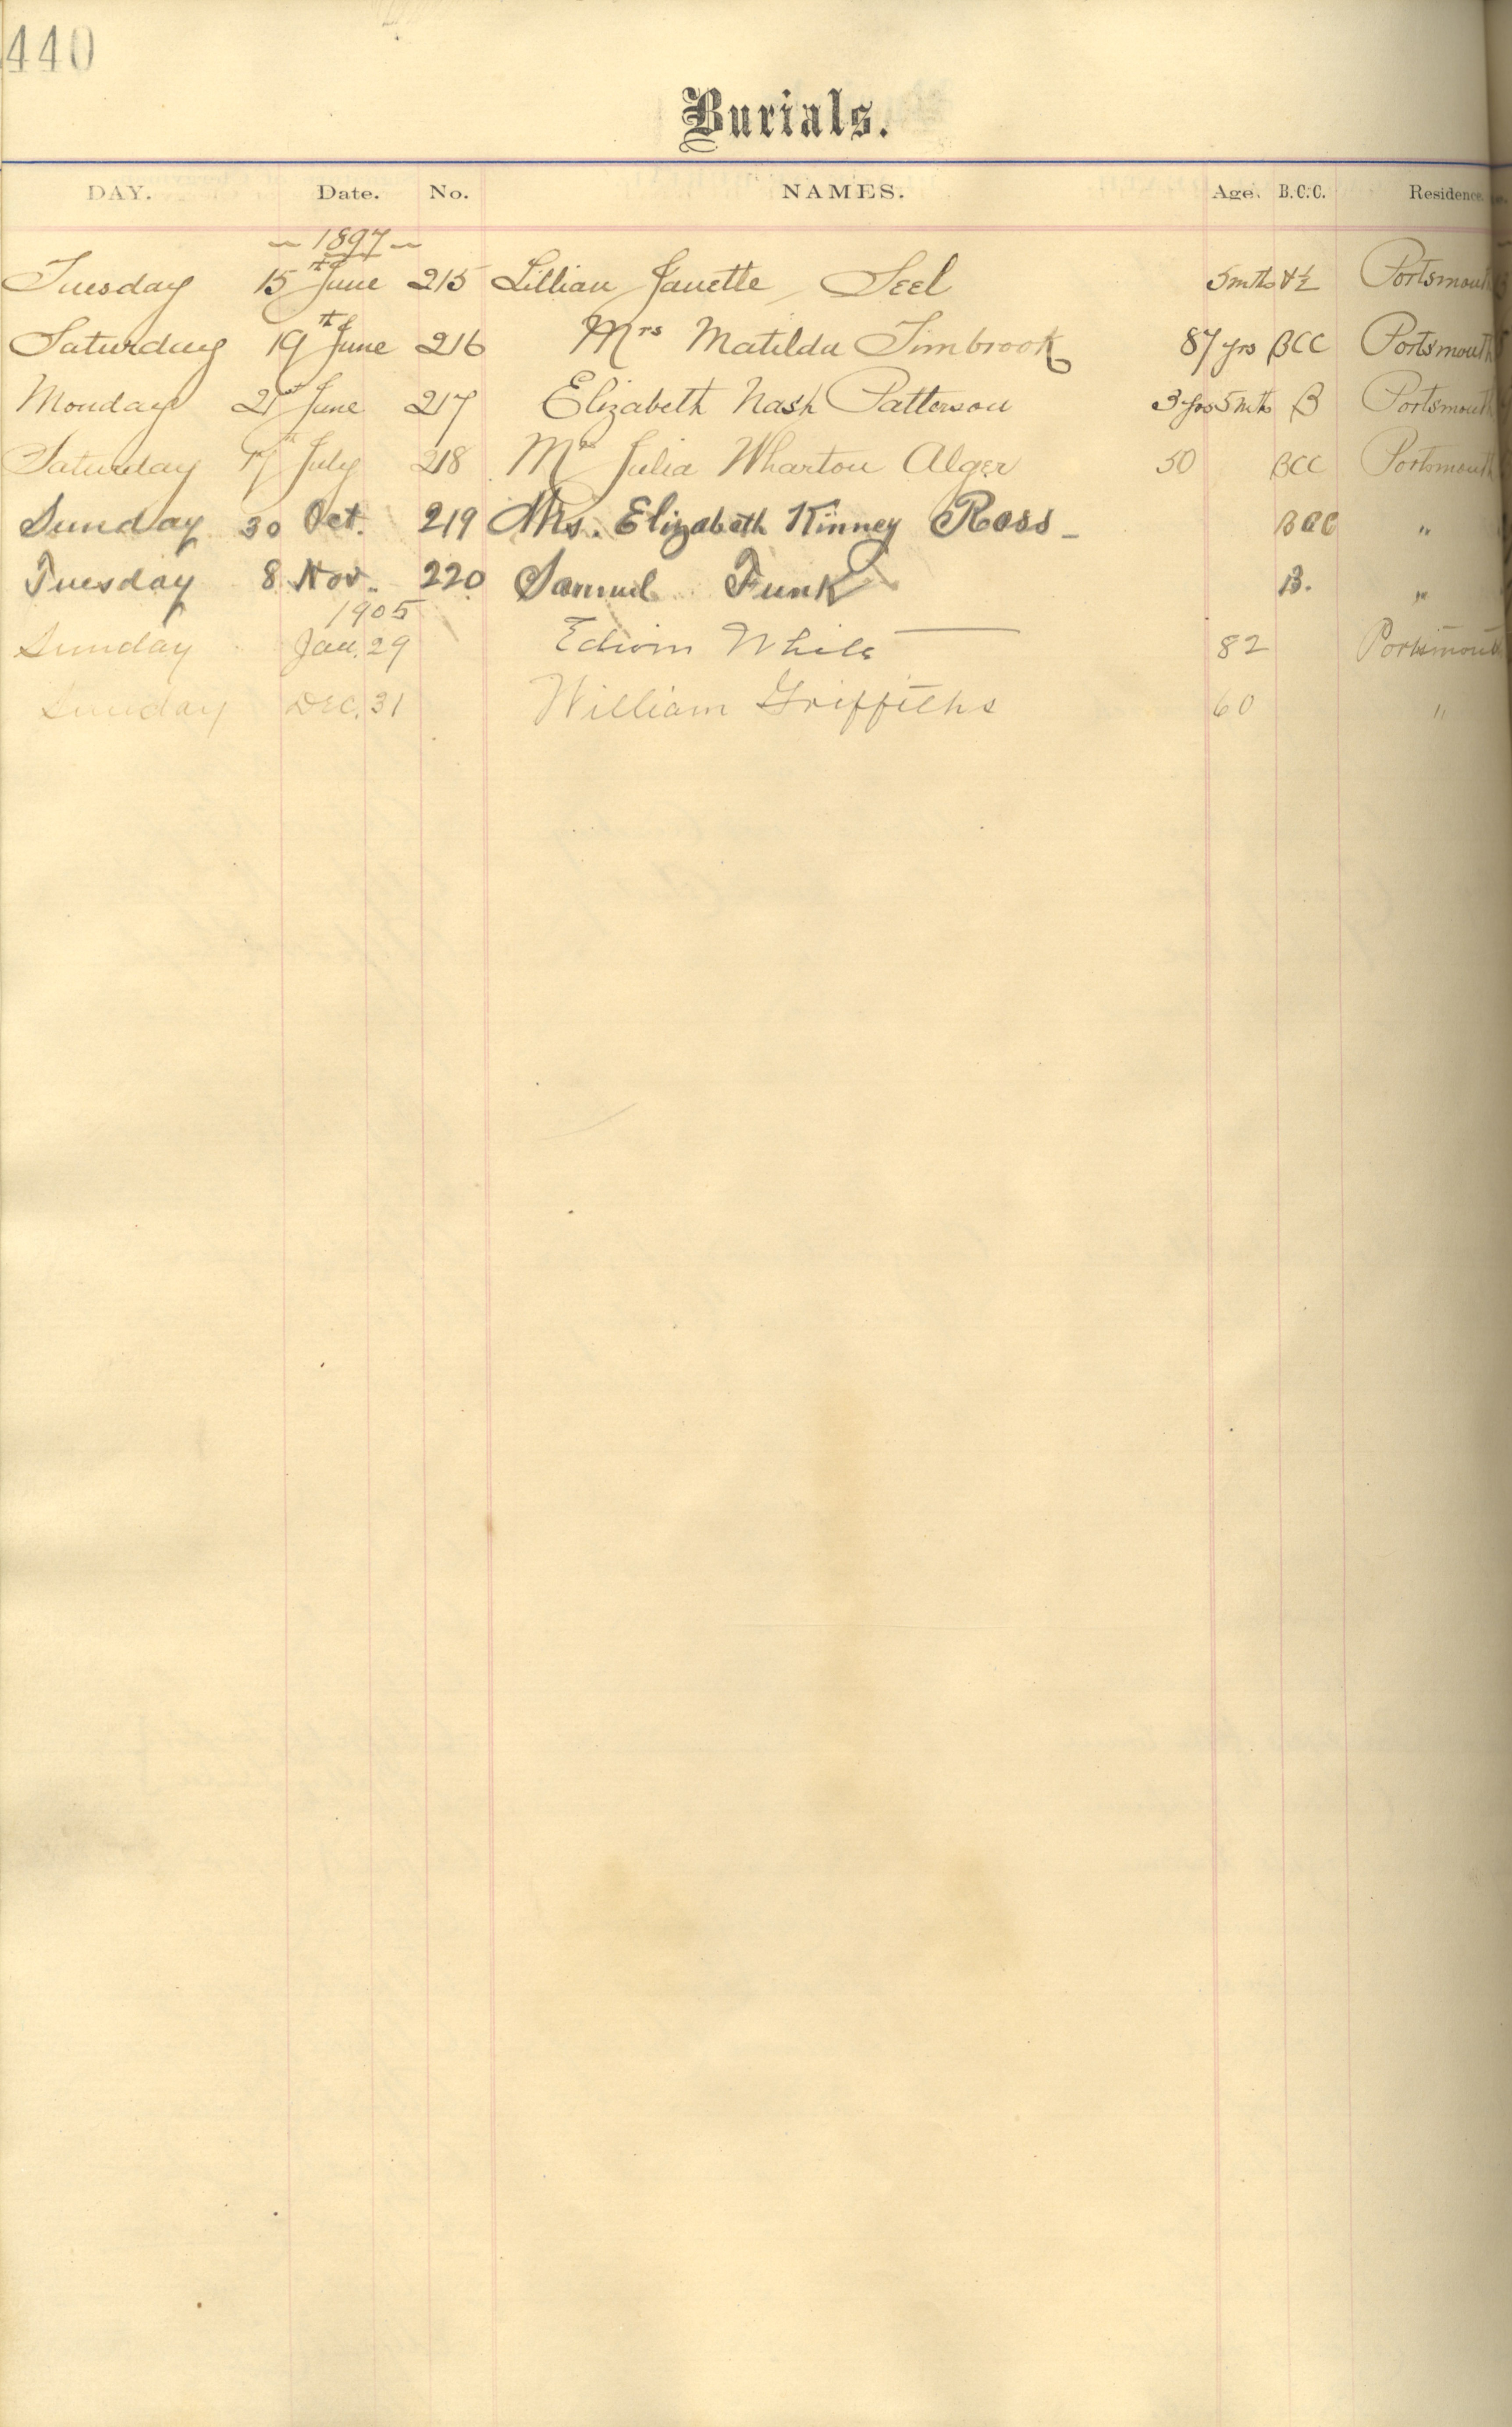 440
Burials.
DAY. Date. No. NAMES. Age. B.C.C. Residence.
— 1897 —
Tuesday 15th June 215 Lillian Janette Seel 5mths & ½ Portsmouth
Saturday 19th June 216 Mrs Matilda Timbrook 87 yrs BCC Portsmouth
Monday 21st June 217 Elizabeth Nash Patterson 3 yrs 5 mths B Portsmouth
Saturday July 218 Julia Wharton Alger 50 BCC Portsmouth
Sunday 30 Oct. 219 Mrs. Elizabeth Kinney Ross - BCC "
Tuesday 8 Nov. 220 Samuel Funk B. "
1905
Sunday Jan. 29 Edwin White 82 Portsmouth
Sunday Dec. 31 William Griffiths 60 "